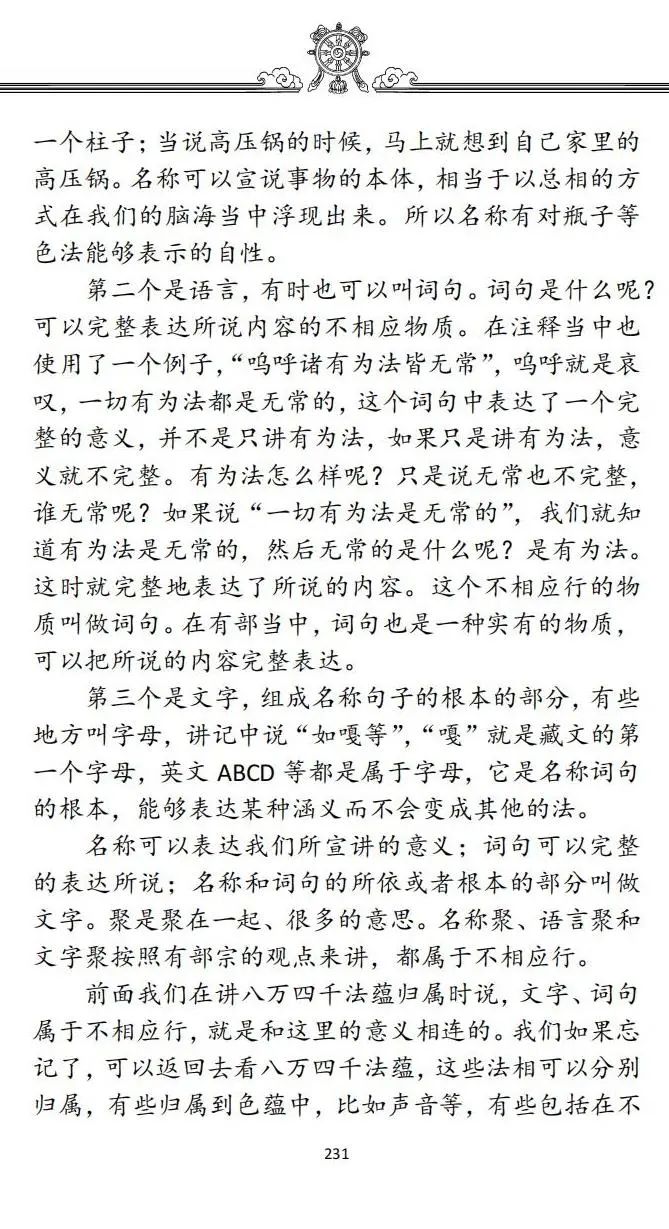 一个柱子；当说高压锅的时候，马上就想到自己家里的
高压锅。名称可以宣说事物的本体，相当于以总相的方
式在我们的脑海当中浮现出来。所以名称有对瓶子等
色法能够表示的自性。
第二个是语言，有时也可以叫词句。词句是什么呢？
可以完整表达所说内容的不相应物质。在注释当中也
使用了一个例子，“呜呼诸有为法皆无常”，呜呼就是哀
叹，一切有为法都是无常的，这个词句中表达了一个完
整的意义，并不是只讲有为法，如果只是讲有为法，意
义就不完整。有为法怎么样呢？只是说无常也不完整，
谁无常呢？如果说“一切有为法是无常的”，我们就知
道有为法是无常的，然后无常的是什么呢？是有为法。
这时就完整地表达了所说的内容。这个不相应行的物
质叫做词句。在有部当中，词句也是一种实有的物质，
可以把所说的内容完整表达。
第三个是文字，组成名称句子的根本的部分，有些
地方叫字母，讲记中说“如嘎等”，“嘎”就是藏文的第
一个字母，英文 ABCD 等都是属于字母，它是名称词句
的根本，能够表达某种涵义而不会变成其他的法。
名称可以表达我们所宣讲的意义；词句可以完整
的表达所说；名称和词句的所依或者根本的部分叫做
文字。聚是聚在一起、很多的意思。名称聚、语言聚和
文字聚按照有部宗的观点来讲，都属于不相应行。
前面我们在讲八万四千法蕴归属时说，文字、词句
属于不相应行，就是和这里的意义相连的。我们如果忘
记了，可以返回去看八万四千法蕴，这些法相可以分别
归属，有些归属到色蕴中，比如声音等，有些包括在不
231